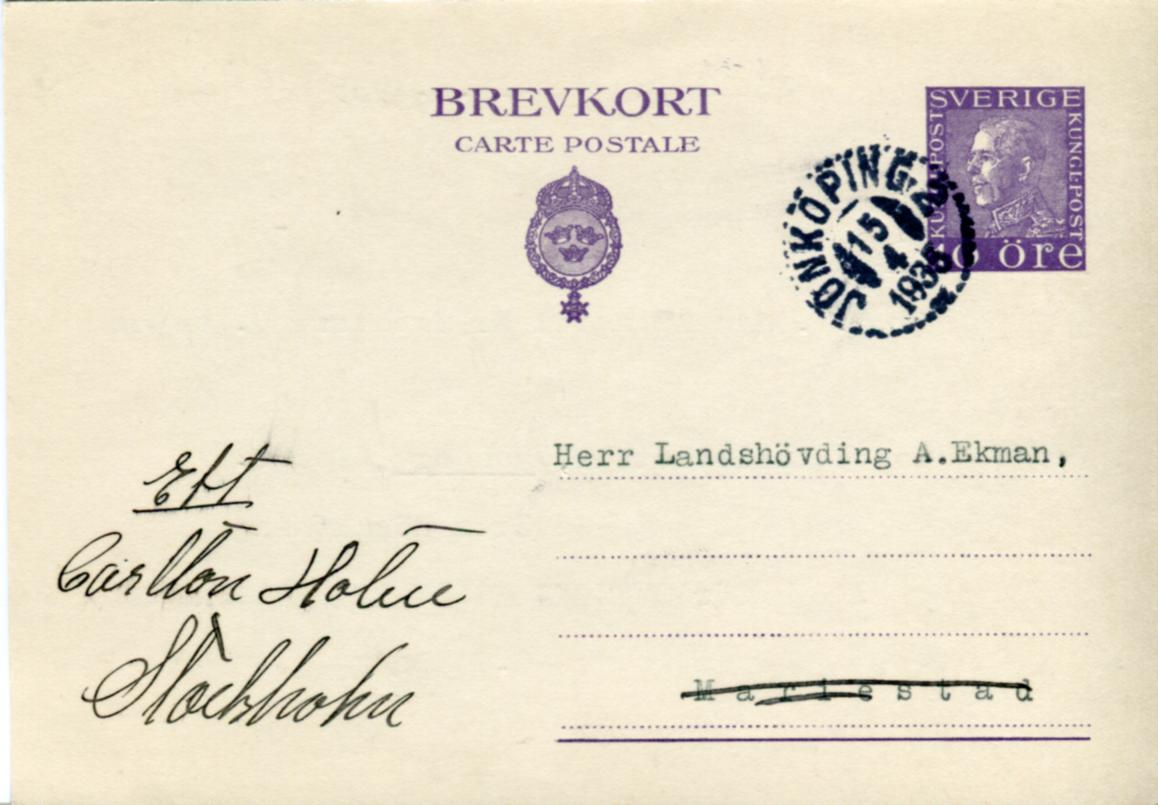 BREVKORT
CARTE POSTALE
SVERIGE
KUNGL. POST
KUNGL. POST
10 öre
JÖNKÖPING
15
4
193
Herr Landshövding A.Ekman,
Mariestad
Eft
Carlton Hotel
Stockholm